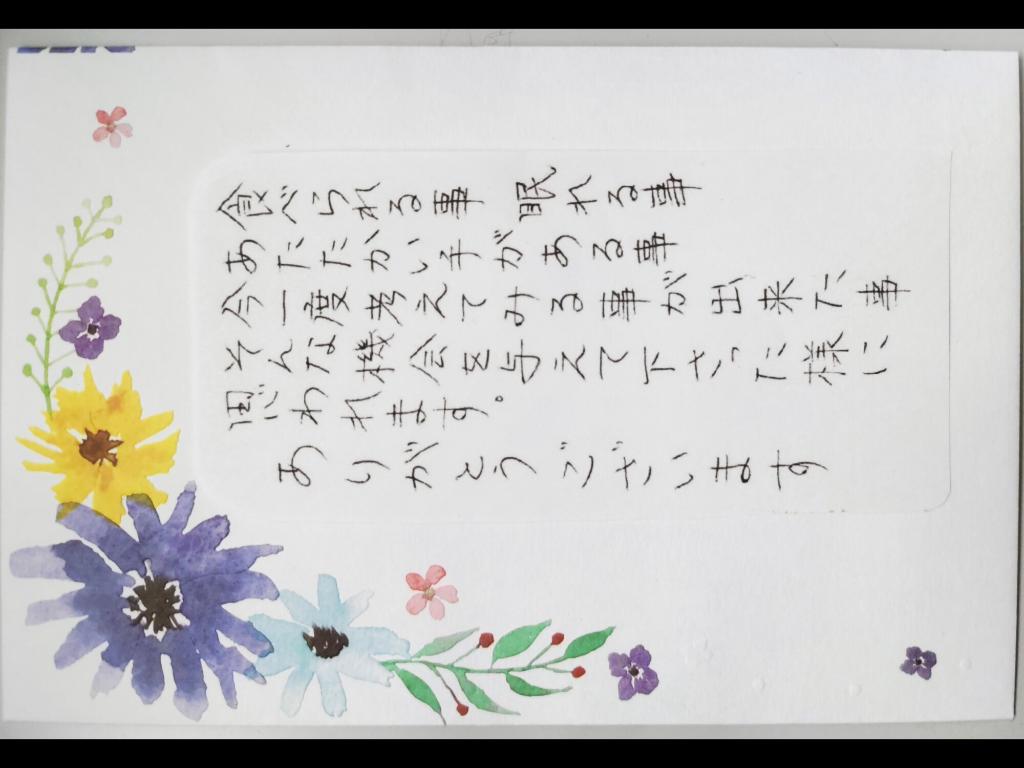 食べられる事 眠れる事
あたたかい手がある事
今一度考えてみる事が出来た事
そんな機会を与えて下さった様に
思われます。
ありがとうございます